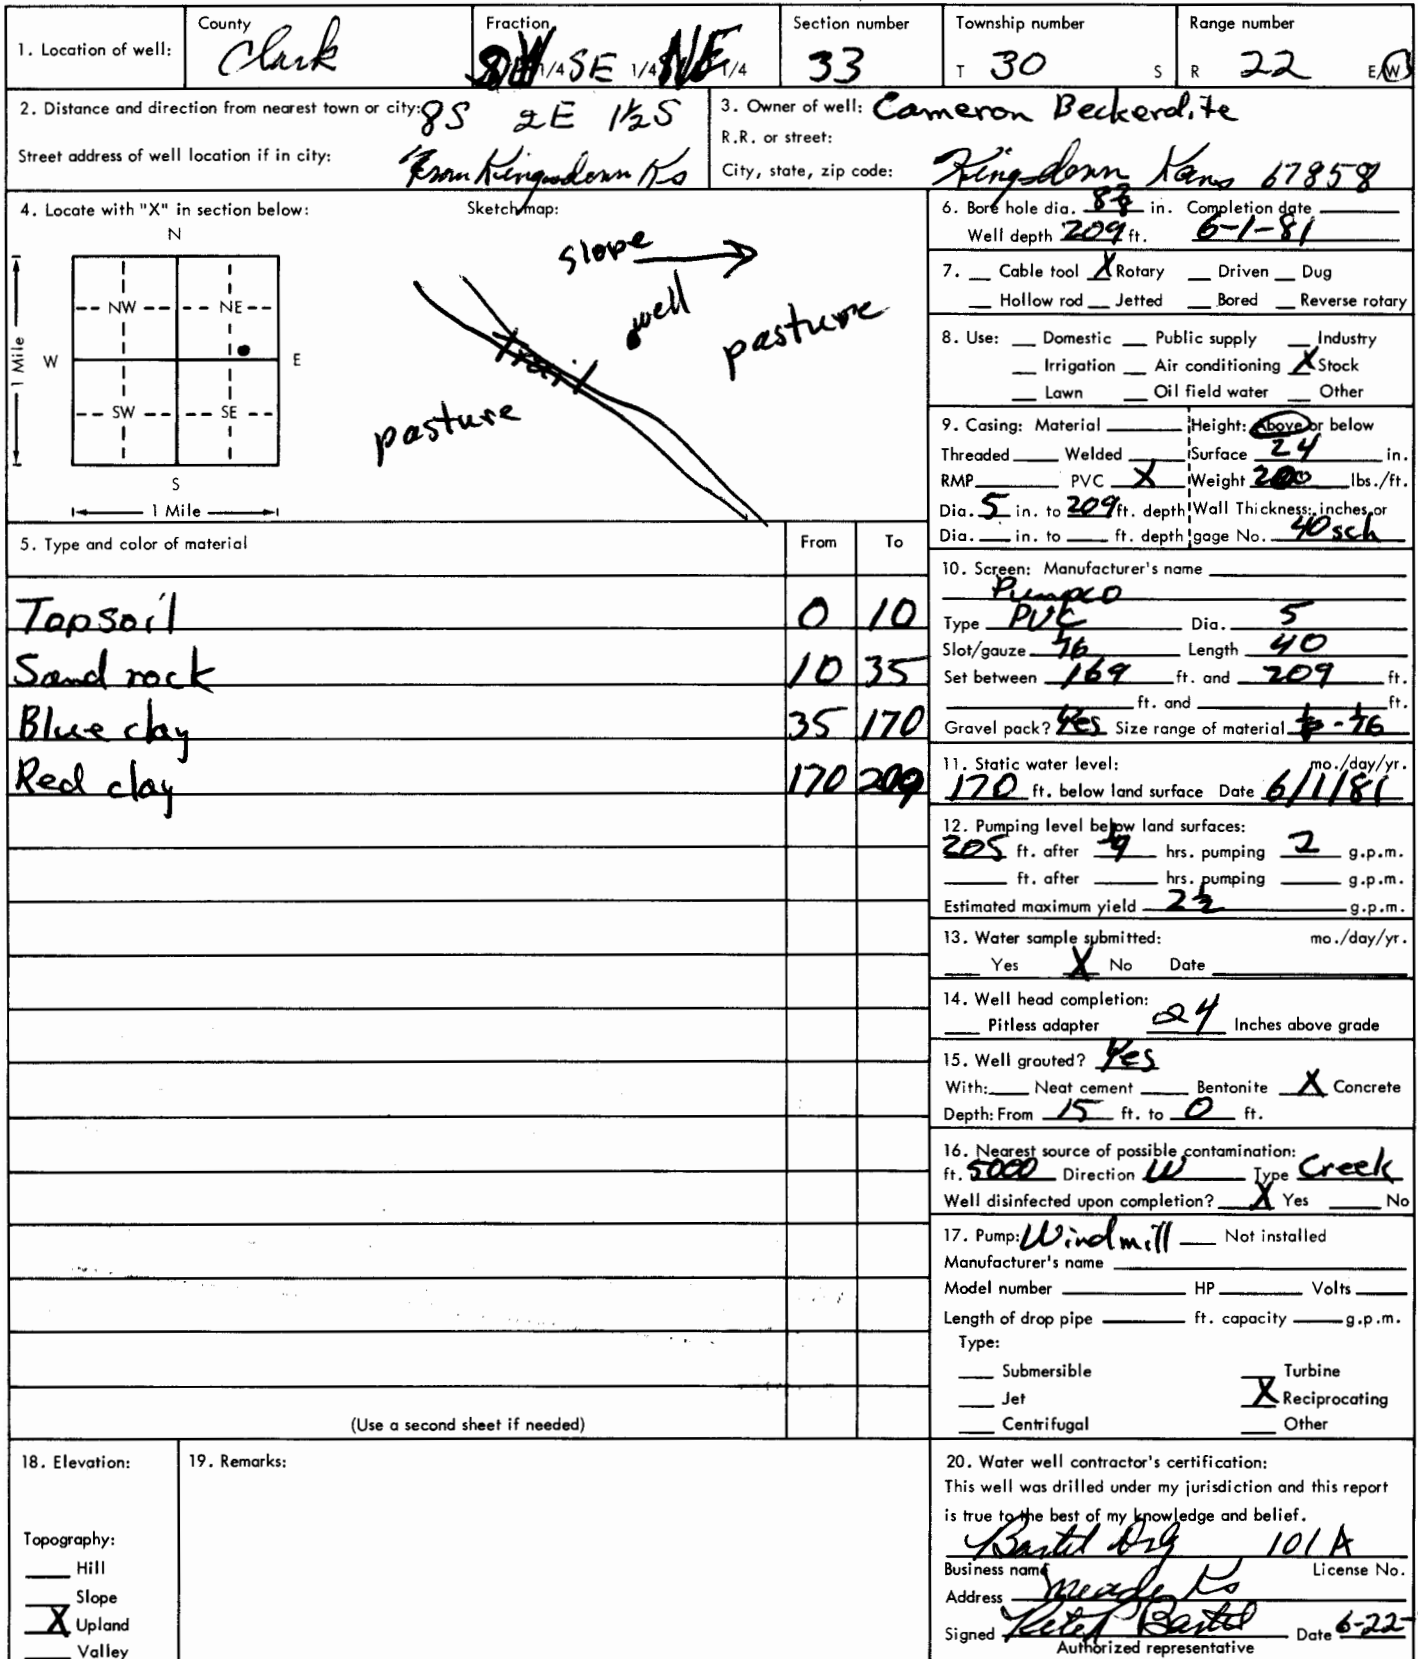 1. Location of well: County Clark Fraction 1/4 SE 1/4 NE 1/4 Section number 33 Township number T 30 S Range number R 22 E/W
2. Distance and direction from nearest town or city: 8S 2E 1½S
Street address of well location if in city: From Kingsdown Ks
3. Owner of well: Cameron Beckerdite
R.R. or street:
City, state, zip code: Kingsdown Kans 67858
4. Locate with "X" in section below:
N
NW NE
W E
SW SE
S
1 Mile
1 Mile
Sketch map:
slope
well
pasture
Trail
pasture
5. Type and color of material From To
Topsoil 0 10
Sand rock 10 35
Blue clay 35 170
Red clay 170 209
(Use a second sheet if needed)
6. Bore hole dia. in. Completion date
Well depth 209 ft. 6-1-81
7. Cable tool X Rotary Driven Dug
Hollow rod Jetted Bored Reverse rotary
8. Use: Domestic Public supply Industry
Irrigation Air conditioning X Stock
Lawn Oil field water Other
9. Casing: Material Height: Above or below
Threaded Welded Surface 24 in.
RMP PVC X Weight 200 lbs./ft.
Dia. 5 in. to 209 ft. depth Wall Thickness: inches or
Dia. in. to ft. depth gage No. 40 sch
10. Screen: Manufacturer's name
Pumpco
Type PVC Dia. 5
Slot/gauze 1/16 Length 40
Set between 169 ft. and 209 ft.
ft. and ft.
Gravel pack? Yes Size range of material - 1/16
11. Static water level: mo./day/yr.
170 ft. below land surface Date 6/1/81
12. Pumping level below land surfaces:
205 ft. after hrs. pumping 2 g.p.m.
ft. after hrs. pumping g.p.m.
Estimated maximum yield 2½ g.p.m.
13. Water sample submitted: mo./day/yr.
Yes X No Date
14. Well head completion:
Pitless adapter 24 Inches above grade
15. Well grouted? Yes
With: Neat cement Bentonite X Concrete
Depth: From 15 ft. to 0 ft.
16. Nearest source of possible contamination:
ft. 5000 Direction W Type Creek
Well disinfected upon completion? X Yes No
17. Pump: Windmill Not installed
Manufacturer's name
Model number HP Volts
Length of drop pipe ft. capacity g.p.m.
Type:
Submersible Turbine
Jet X Reciprocating
Centrifugal Other
18. Elevation:
Topography:
Hill
Slope
X Upland
Valley
19. Remarks:
20. Water well contractor's certification:
This well was drilled under my jurisdiction and this report
is true to the best of my knowledge and belief.
Bartel Drlg 101A
Business name License No.
Address Meade Ks
Signed Pete Bartel Date 6-22-
Authorized representative